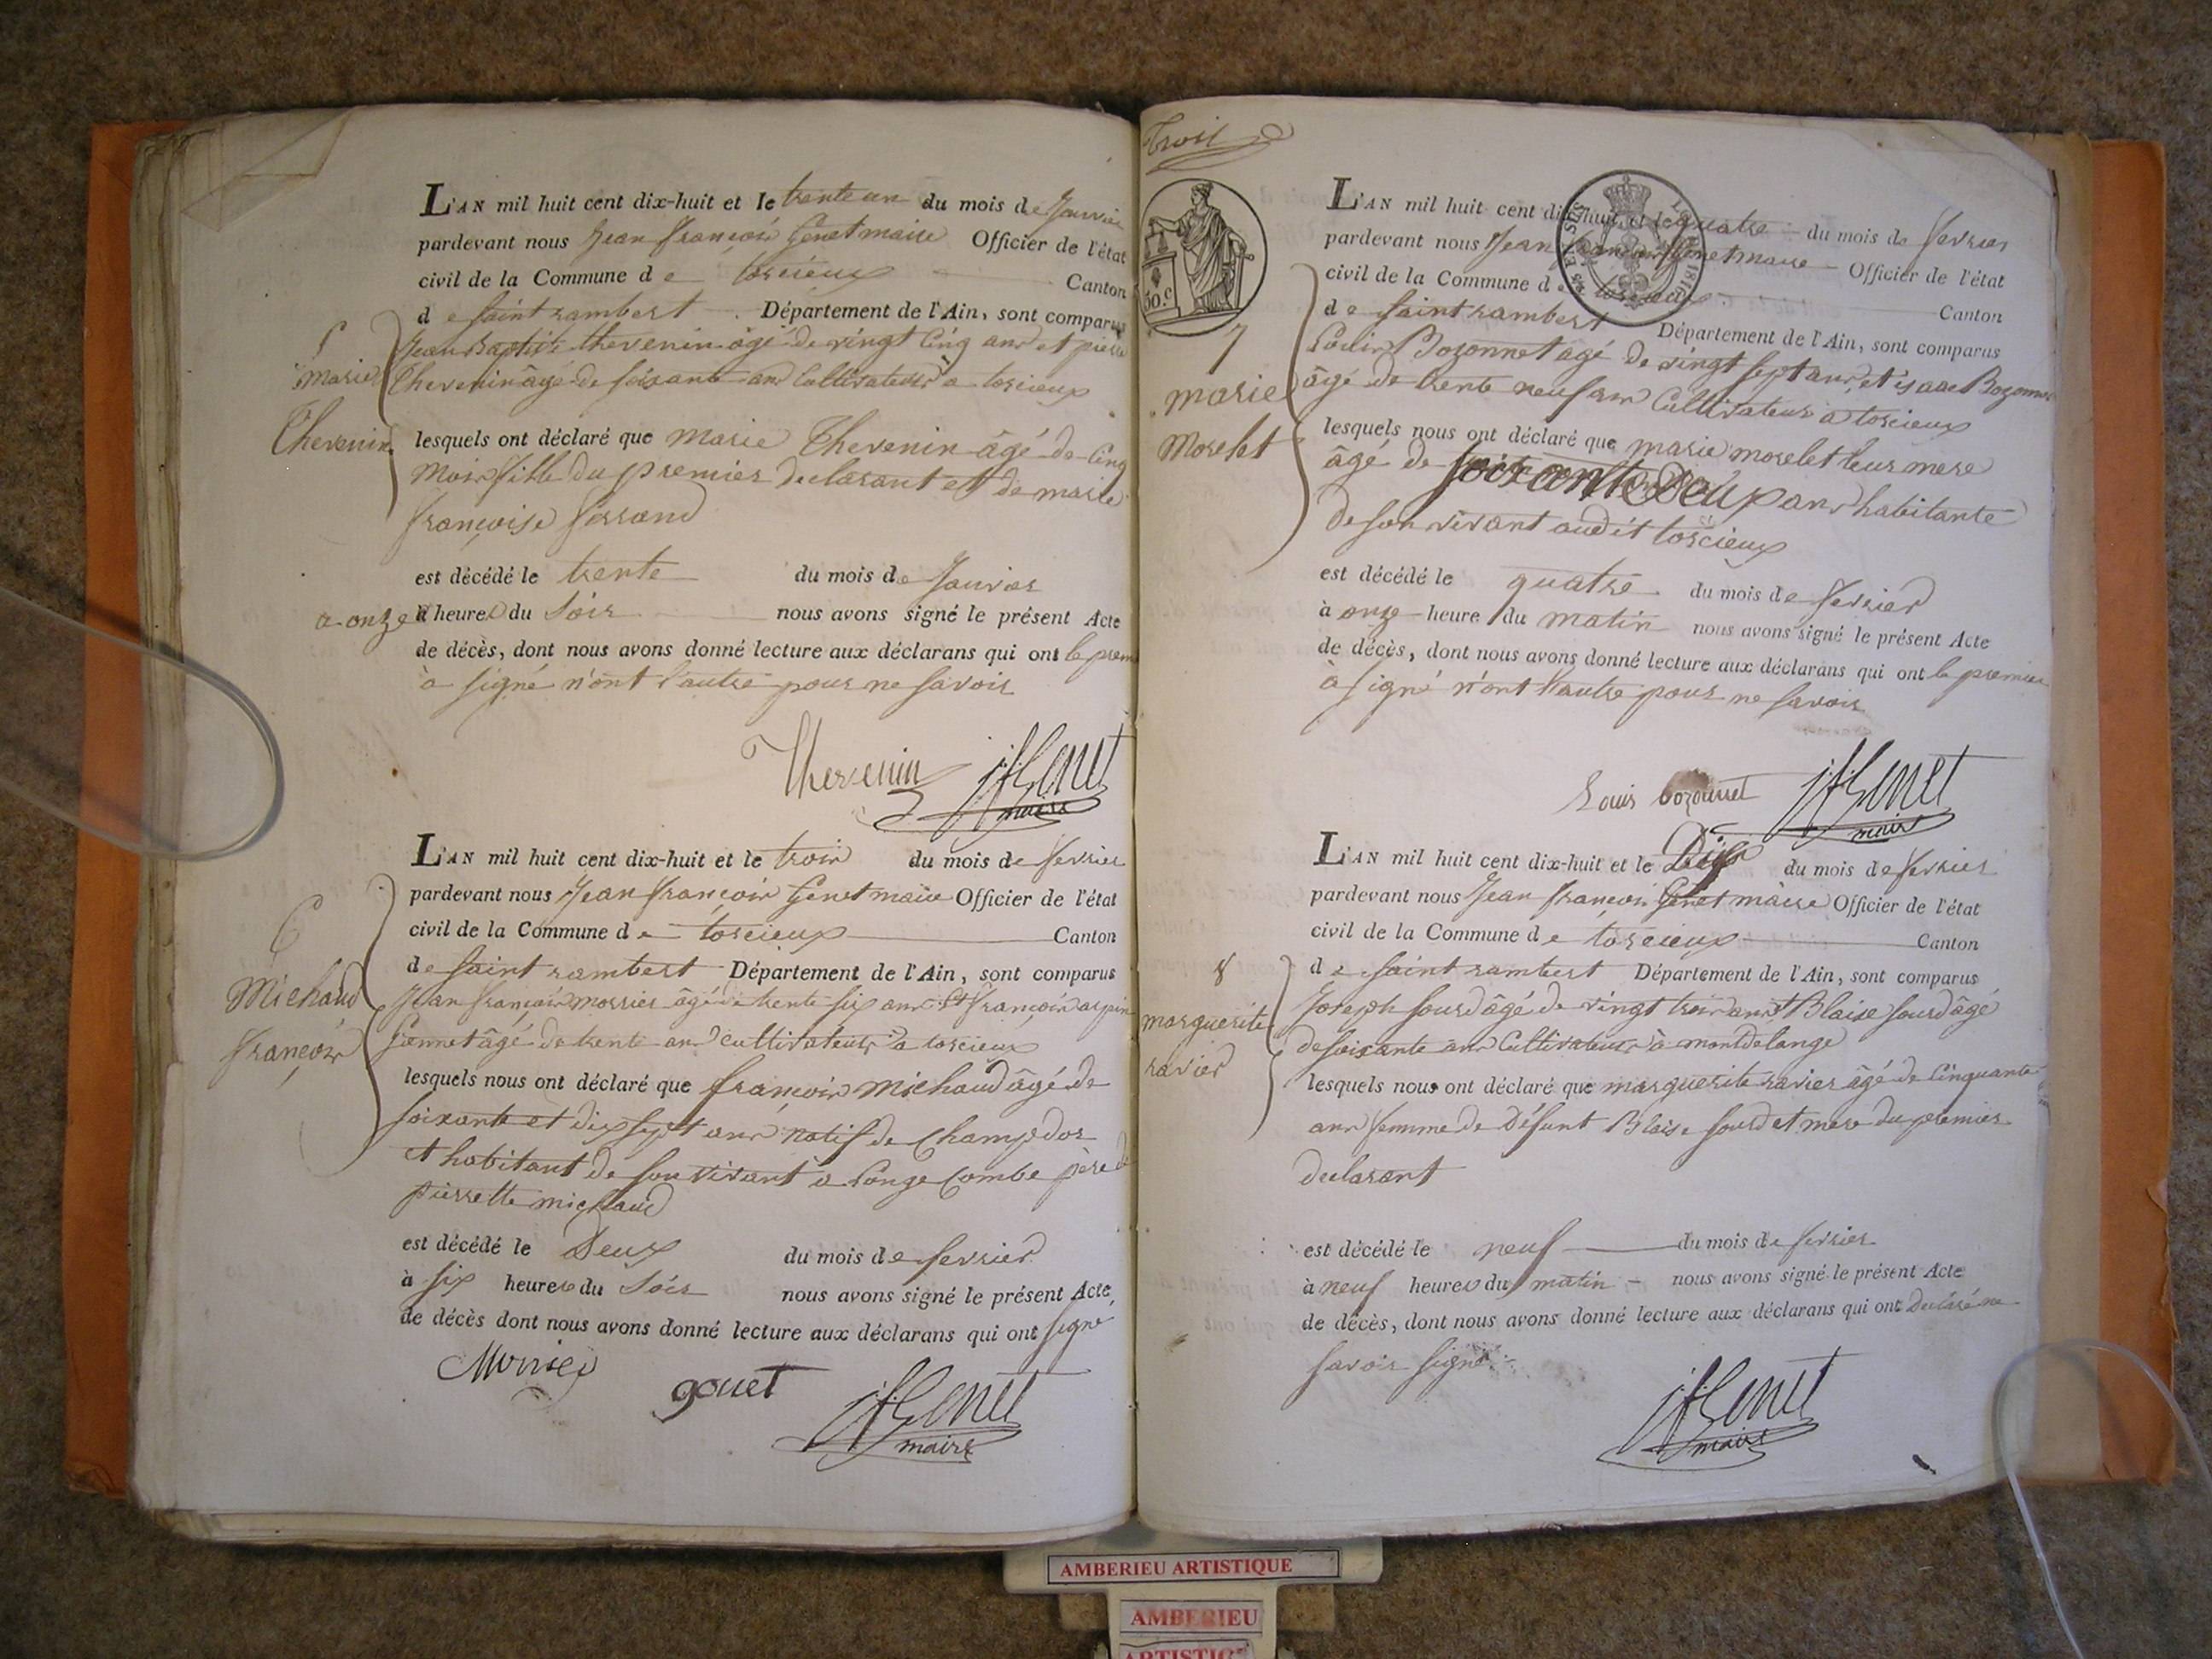 L'AN mil huit cent dix-huit et le trente un du mois de Janvier
pardevant nous Jean françois Genet maire Officier de l'état
civil de la Commune de torcieux Canton
de saint rambert Département de l'Ain, sont comparus
Jean Baptiste thevenin âgé de vingt cinq ans et pierre
Thevenin âgé de soixante ans Cultivateurs a torcieux
5
marie
Thevenin
lesquels ont déclaré que marie Thevenin âgé de cinq
mois fille du premier declarant et de marie
françoise ferrand
est décédé le trente du mois de Janvier
a onze à heures du soir nous avons signé le présent Acte
de décès, dont nous avons donné lecture aux déclarans qui ont le prem
à signé n'ont l'autre pour ne savoir
Thevenin jfGenet
maire
L'AN mil huit cent dix-huit et le trois du mois de fevrier
pardevant nous Jean françois Genet maire Officier de l'état
civil de la Commune de torcieux Canton
de saint rambert Département de l'Ain, sont comparus
Jean françois morrier âgé de trente six ans et françois arpin
Gonnet âgé de trente ans cultivateurs a torcieux
6
Michaud
françois
lesquels nous ont déclaré que françois michaud âgé de
soixante et dix sept ans natif de Champdor
et habitant de son vivant a Longe Combe père de
pierrette michaud
est décédé le Deux du mois de fevrier
à six heures du soir nous avons signé le présent Acte
de décès dont nous avons donné lecture aux déclarans qui ont signé
gouet jfGenet
maire
Trois
30.c
L'AN mil huit cent dix-huit et le quatre du mois de fevrier
pardevant nous Jean françois Genet maire Officier de l'état
civil de la Commune de torcieux Canton
de saint rambert Département de l'Ain, sont comparus
Louis Bozonnet agé de vingt sept ans, et isaac Bozonnet
âgé de trente neuf ans Cultivateurs a torcieux
7
marie
Morelet
lesquels nous ont déclaré que marie morelet leur mere
âgé de soixante Deux ans habitante
de son vivant audit torcieux
est décédé le quatre du mois de fevrier
à onze heure du matin nous avons signé le présent Acte
de décès, dont nous avons donné lecture aux déclarans qui ont le premier
à signé n'ont l'autre pour ne savoir
Louis bozonnet jfGenet
maire
L'AN mil huit cent dix-huit et le Dix du mois de fevrier
pardevant nous Jean françois Genet màire Officier de l'état
civil de la Commune de torcieux Canton
de saint rambert Département de l'Ain, sont comparus
Joseph sourd âgé de vingt trois ans et Blaise sourd âgé
de soixante ans Cultivateurs à montdelange
8
marguerite
ravier
lesquels nous ont déclaré que marguerite ravier âgé de cinquante
ans femme de Défunt Blaise sourd et mere du premier
declarant
est décédé le neuf du mois de fevrier
à neuf heures du matin nous avons signé le présent Acte
de décès, dont nous avons donné lecture aux déclarans qui ont declaré ne
savoir signé
jfGenet
maire
AMBERIEU ARTISTIQUE
AMBERIEU
ARTISTIQ